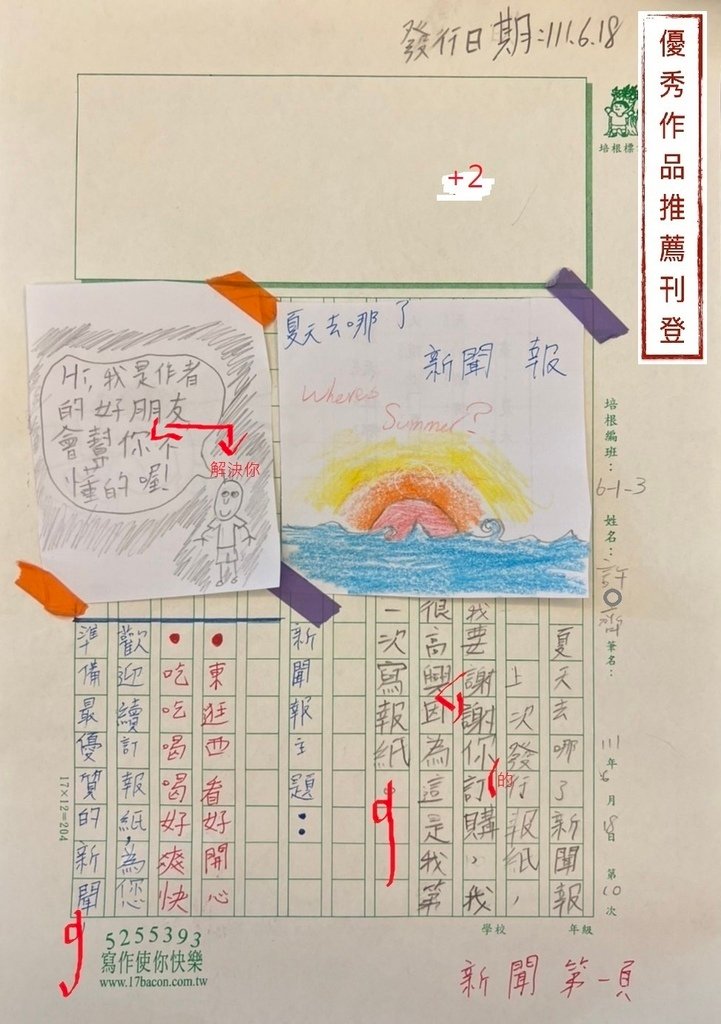 發行日期:111.6.18
優秀作品推薦刊登
+2
培根標
Hi,我是作者
的好朋友
會幫你不
懂的喔!
解決你
夏天去哪了
新聞報
Where's
Summer?
培根編班：6-1-3
姓名：許 齊
筆名：
111年6月18日 第10次
夏天去哪了新聞報
上次發行報紙，
的
我要謝謝你訂購，我
很高興因為這是我第
一次寫報紙。
新聞報主題：
•東逛西看好開心
•吃吃喝喝好爽快
歡迎續訂報紙，為您
準備最優質的新聞
17×12=204
學校
年級
5255393
寫作使你快樂
www.17bacon.com.tw
新聞第一頁